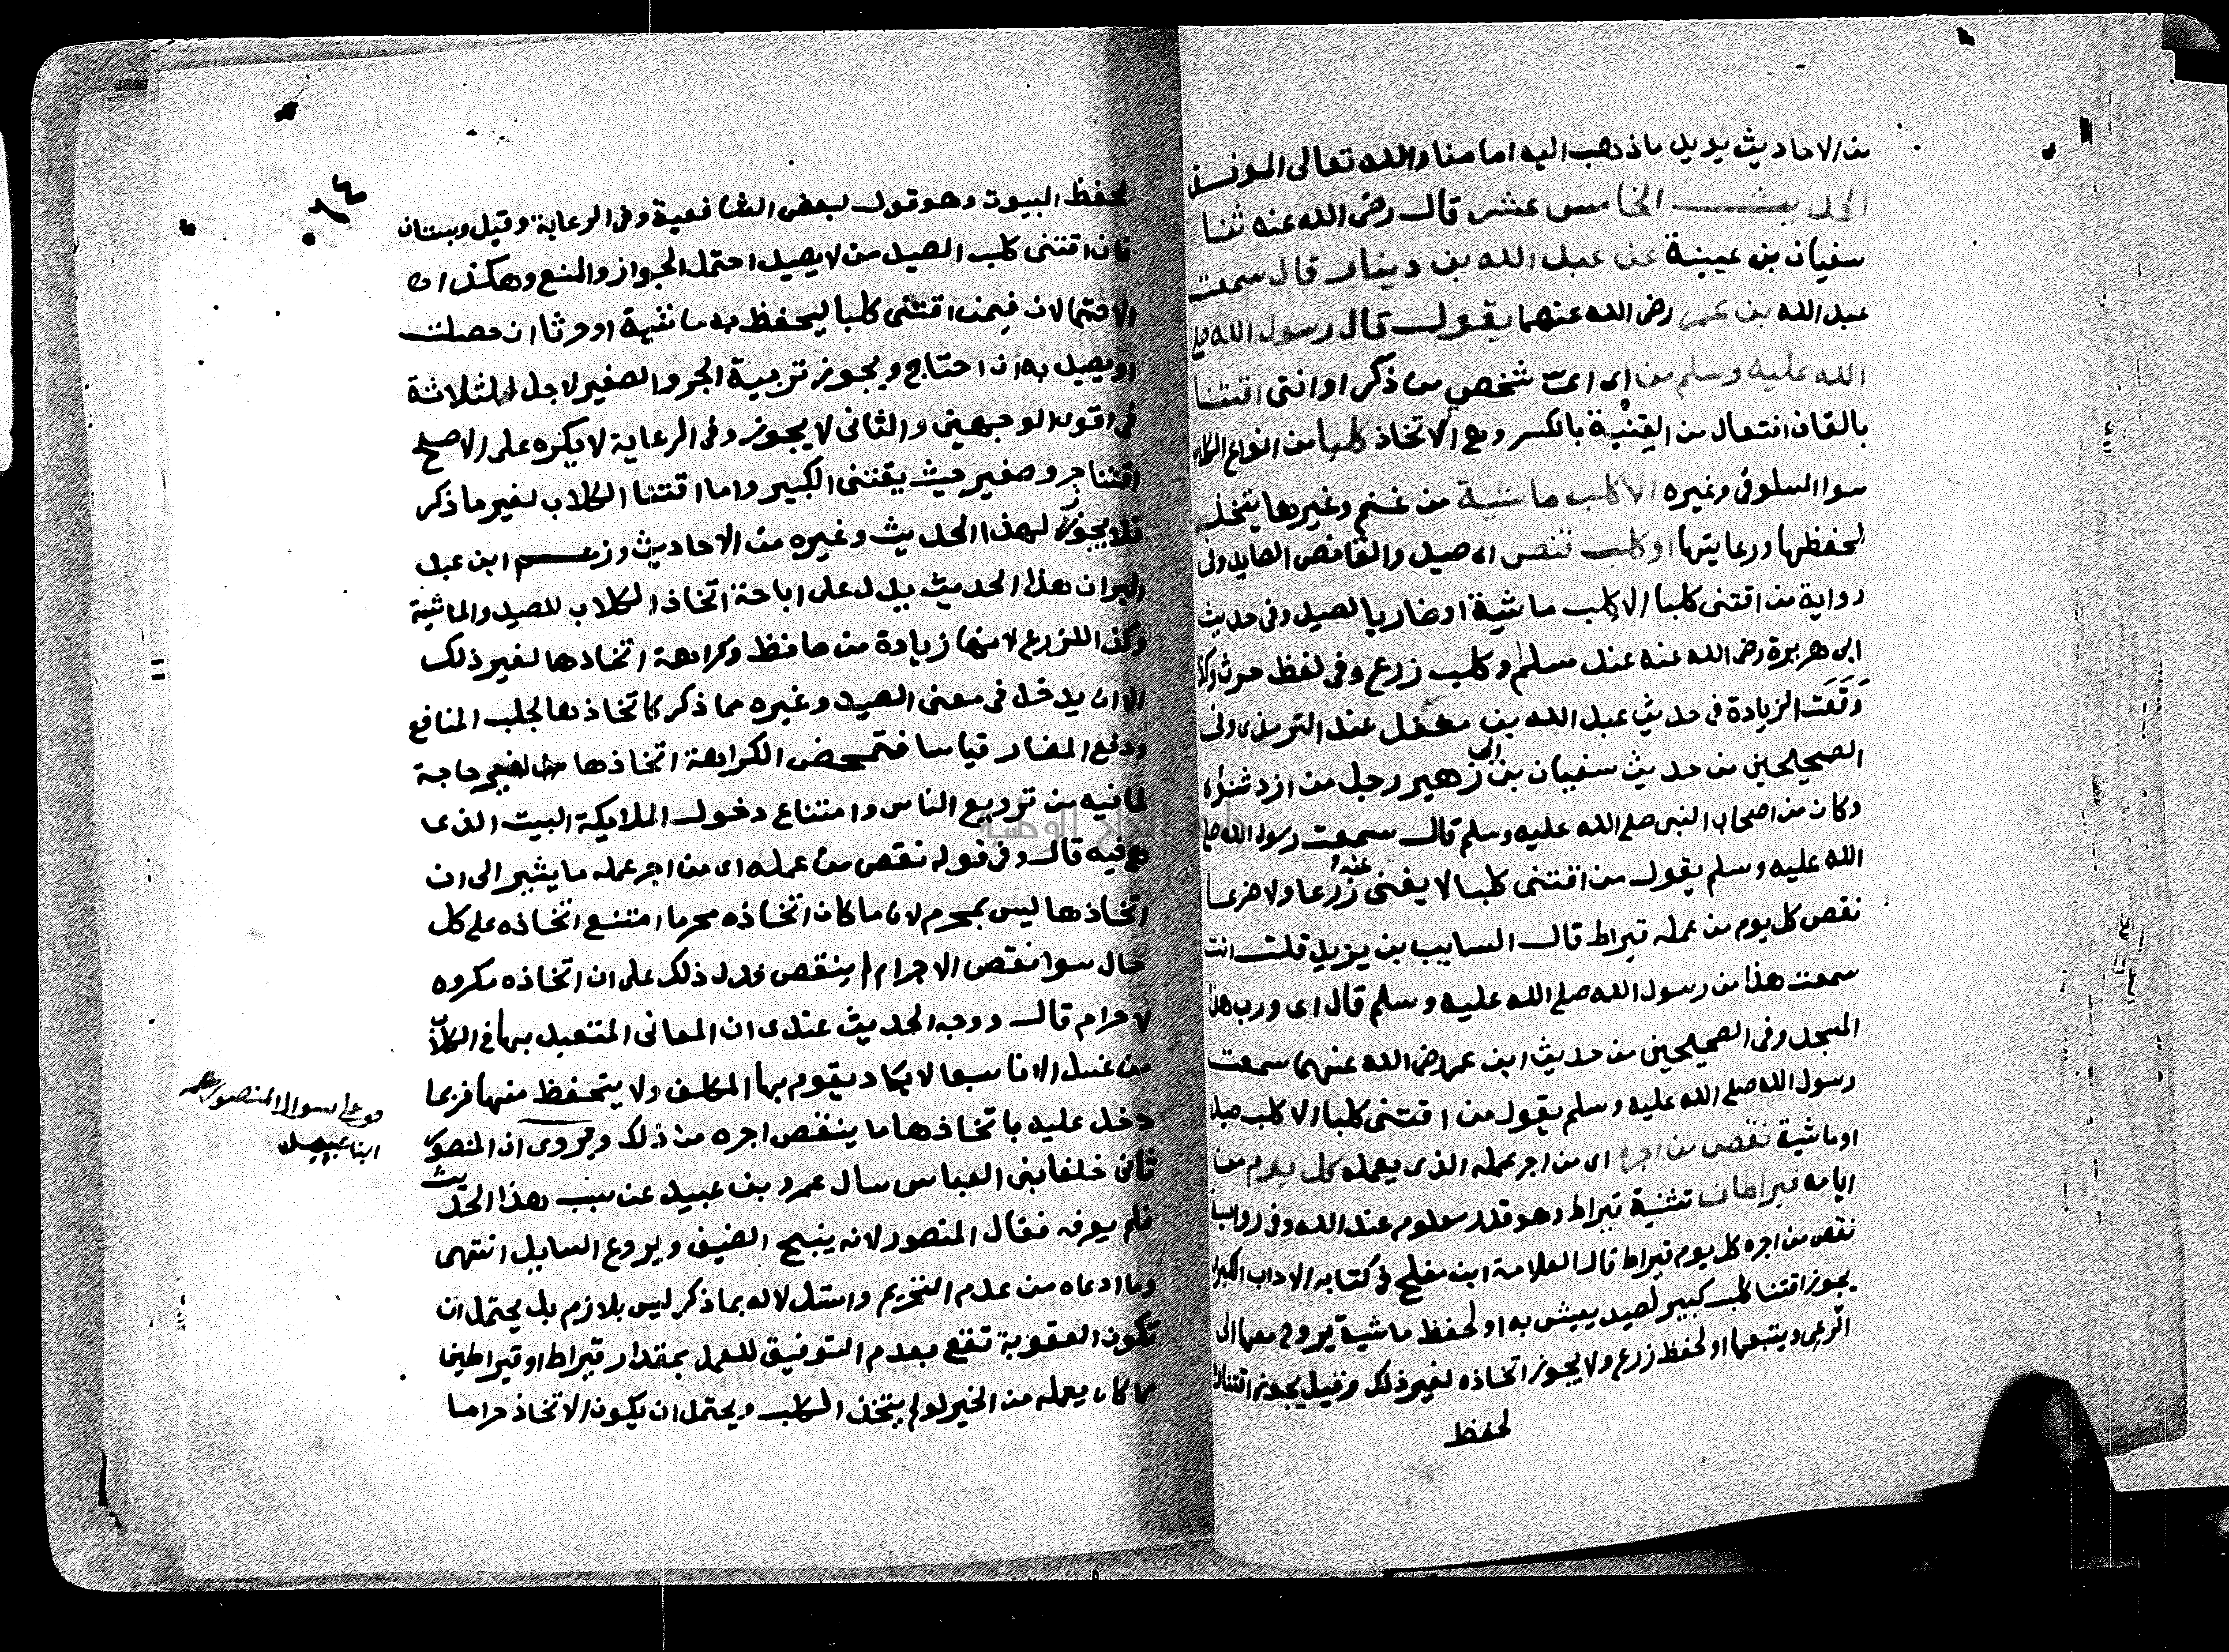 من الاحاديث يويد ما ذهب اليه امامنا والله تعالى الموفق
الحديث الخامس عشر قال رضى الله عنه ثنا
سفيان بن عيينة عن عبد الله بن دينار قال سمعت
عبد الله بن عمر رضى الله عنهما يقول قال رسول الله صلى
الله عليه وسلم من اى اىّ شخص من ذكر او انثى اقتنا
بالقاف افتعال من القنية بالكسر وهى الاتخاذ كلبا من انواع الكلاب
سوا السلوقى وغيره الا كلب ماشية من غنم وغيرها يتخذ
لحفظها ورعايتها او كلب قنص اى صيد والقانص الصايد وفى
رواية من اقتنى كلبا الا كلب ماشية او ضاريا لصيد وفى حديث
ابى هريرة رضى الله عنه عند مسلم وكلب زرع وفى لفظ حرث وكذا
وقعت الزيادة فى حديث عبد الله بن مغفل عند الترمذى وفى
الصحيحين من حديث سفيان بن ابى زهير رجل من ازد شنؤة
وكان من اصحاب النبى صلى الله عليه وسلم قال سمعت رسول الله صلى
الله عليه وسلم يقول من اقتنى كلبا لا يغنى عنه زرعا ولا ضرعا
نقص كل يوم من عمله قيراط قال السايب بن يزيد قلت انت
سمعت هذا من رسول الله صلى الله عليه وسلم قال اى ورب هذا
المسجد وفى الصحيحين من حديث ابن عمر رضى الله عنهما سمعت
رسول الله صلى الله عليه وسلم يقول من اقتنى كلبا الا كلب صيد
او ماشية نقص من اجره اى من اجر عمله الذى يعمله كل يوم من
ايامه قيراطان تثنية قيراط وهو قدر معلوم عند الله وفى رواية
نقص من اجره كل يوم قيراط قال العلامة ابن مفلح فى كتابه الاداب الكبرى
يجوز اقتنا كلب كبير لصيد يعيش به او لحفظ ماشية يروح معها الى
المرعى ويتبعها او لحفظ زرع ولا يجوز اتخاذه لغير ذلك وقيل يجوز اقتناه
لحفظ
١٤
لحفظ البيوت وهو قول لبعض الشافعية وفى الرعاية وقيل وبستان
فان اقتنى كلب الصيد من لا يصيد احتمل الجواز والمنع وهكذا
الاحتمالان فيمن اقتنى كلبا ليحفظ به ماشية او حرثا ان حصلت
او يصيد به ان احتاج ويجوز تربية الجرو الصغير لاجل الثلاثة
فى اقوى الوجهين والثانى لا يجوز وفى الرعاية لا يكره على الاصح
اقتنا جرو صغير حيث يقتنى الكبير واما اقتنا الكلاب لغير ما ذكر
فلا يجوز لهذا الحديث وغيره من الاحاديث وزعم ابن عبد
البر ان هذا الحديث يدل على اباحة اتخاذ الكلاب للصيد والماشية
وكذا للزرع لانها زيادة من حافظ وكراهة اتخاذها لغير ذلك
الا ان يدخل فى معنى الصيد وغيره مما ذكر كاتخاذها لجلب المنافع
ودفع المضار قياسا فتمحض الكراهة اتخاذها لغير حاجة
لما فيه من ترويع الناس وامتناع دخول الملايكة البيت الذى
هو فيه قال وفى قوله نقص من عمله اى من اجر عمله ما يشير الى ان
اتخاذها ليس بمحرم لان ما كان اتخاذه محرما امتنع اتخاذه على كل
حال سوا نقص الاجر ام لم ينقص فدل ذلك على ان اتخاذه مكروه
لا حرام قال ووجه الحديث عندى ان المعانى المتعبد بها فى الكلاب
من غسل الانا سبعا لا يكاد يقوم بها المكلف ولا يتحفظ منها فربما
دخل عليه باتخاذها ما ينقص اجره من ذلك ويروى ان المنصور
ثانى خلفا بنى العباس سال عمرو بن عبيد عن سبب هذا الحديث
فلم يعرفه فقال المنصور لانه ينبح الضيف ويروع السايل انتهى
وما ادعاه من عدم التحريم واستدلاله بما ذكر ليس بلازم بل يحتمل ان
تكون العقوبة تقع بعدم التوفيق للعمل بمقدار قيراط او قيراطين
مما كان يعمله من الخير لو لم يتخذ الكلب ويحتمل ان يكون الاتخاذ حراما
سوال المنصور
عبيد